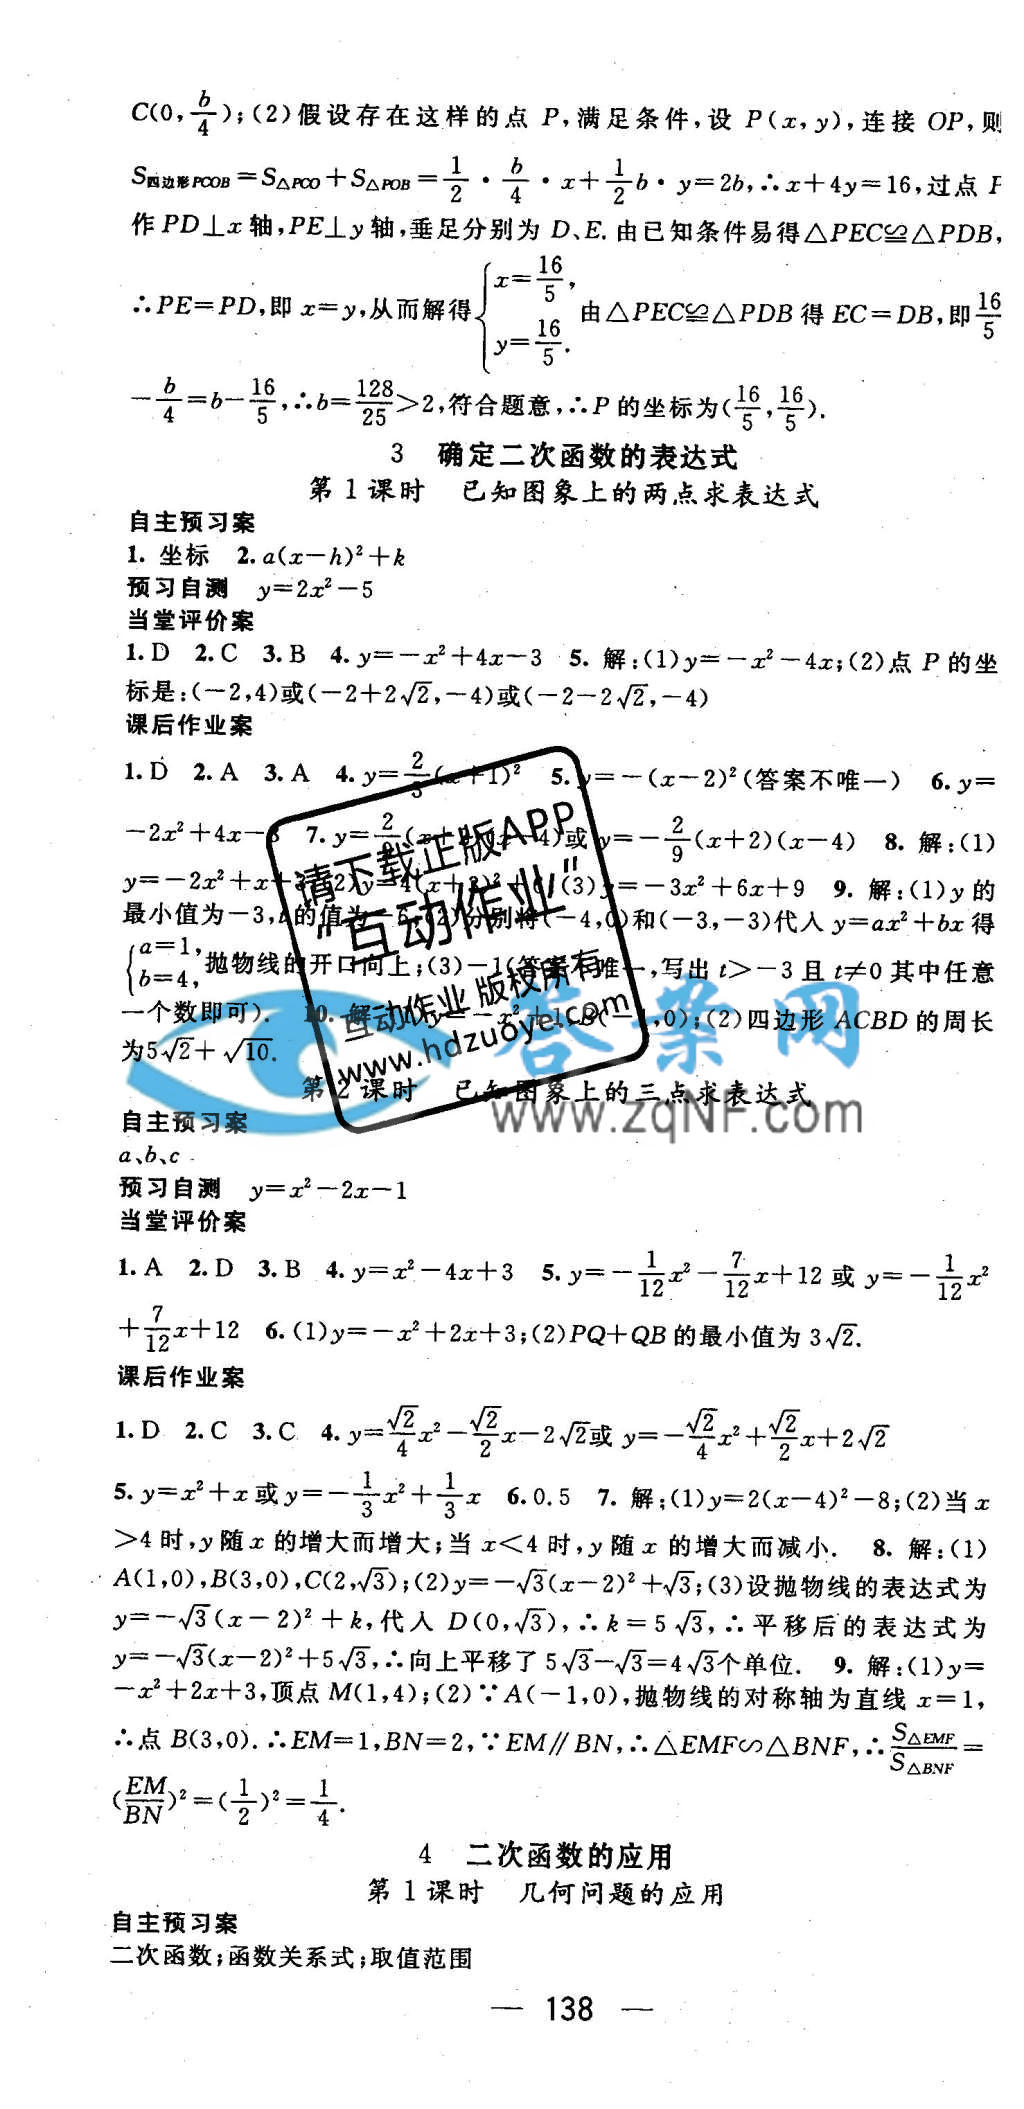 C(0,b/4);(2)假设存在这样的点 P,满足条件,设 P(x,y),连接 OP,则
S四边形PCOB=S△PCO+S△POB=1/2·b/4·x+1/2b·y=2b,∴x+4y=16,过点 P
作 PD⊥x 轴,PE⊥y 轴,垂足分别为 D、E.由已知条件易得△PEC≌△PDB,
∴PE=PD,即 x=y,从而解得{x=16/5, y=16/5. 由△PEC≌△PDB 得 EC=DB,即16/5
-b/4=b-16/5,∴b=128/25>2,符合题意,∴P 的坐标为(16/5,16/5).
3 确定二次函数的表达式
第1课时 已知图象上的两点求表达式
自主预习案
1. 坐标 2. a(x-h)²+k
预习自测 y=2x²-5
当堂评价案
1. D 2. C 3. B 4. y=-x²+4x-3 5. 解:(1)y=-x²-4x;(2)点 P 的坐
标是:(-2,4)或(-2+2√2,-4)或(-2-2√2,-4)
课后作业案
1. D 2. A 3. A 4. y=2/3(x+1)² 5. y=-(x-2)²(答案不唯一) 6. y=
-2x²+4x- 7. y= (x+ -4)或 y=-2/9(x+2)(x-4) 8. 解:(1)
y=-2x²+x+ (2)y=4(x+ )²+ (3)y=-3x²+6x+9 9. 解:(1)y 的
最小值为-3, 的值为-6;(2)分别将(-4,0)和(-3,-3)代入 y=ax²+bx 得
{a=1, b=4, 抛物线的开口向上;(3)-1(答案不唯一,写出 t>-3 且 t≠0 其中任意
一个数即可). 10. 解 -x²+1, B(-1,0);(2)四边形 ACBD 的周长
为5√2+√10.
第2课时 已知图象上的三点求表达式
自主预习案
a、b、c
预习自测 y=x²-2x-1
当堂评价案
1. A 2. D 3. B 4. y=x²-4x+3 5. y=-1/12x²-7/12x+12 或 y=-1/12x²
+7/12x+12 6. (1)y=-x²+2x+3;(2)PQ+QB 的最小值为 3√2.
课后作业案
1. D 2. C 3. C 4. y=√2/4x²-√2/2x-2√2或 y=-√2/4x²+√2/2x+2√2
5. y=x²+x 或 y=-1/3x²+1/3x 6. 0.5 7. 解:(1)y=2(x-4)²-8;(2)当 x
>4 时,y 随 x 的增大而增大;当 x<4 时,y 随 x 的增大而减小. 8. 解:(1)
A(1,0),B(3,0),C(2,√3);(2)y=-√3(x-2)²+√3;(3)设抛物线的表达式为
y=-√3(x-2)²+k,代入 D(0,√3),∴k=5√3,∴平移后的表达式为
y=-√3(x-2)²+5√3,∴向上平移了 5√3-√3=4√3个单位. 9. 解:(1)y=
-x²+2x+3,顶点 M(1,4);(2)∵A(-1,0),抛物线的对称轴为直线 x=1,
∴点 B(3,0).∴EM=1,BN=2,∵EM∥BN,∴△EMF∽△BNF,∴S△EMF/S△BNF=
(EM/BN)²=(1/2)²=1/4.
4 二次函数的应用
第1课时 几何问题的应用
自主预习案
二次函数;函数关系式;取值范围
— 138 —
请下载正版APP
"互动作业"
互动作业 版权所有
www.hdzuoye.com
答案网
www.zqNF.com